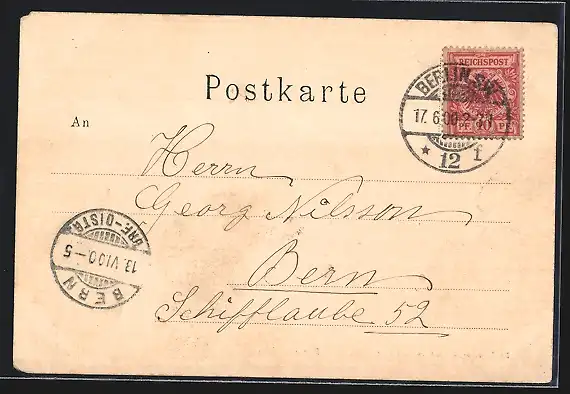 Postkarte
REICHSPOST
BERLIN S.W.
17.6.00.2-3N
* 12 f
An
Herrn
Georg Nilsson
Bern
Schifflaube 52
BRE-DISTR.
13.VI.00-5
BERN